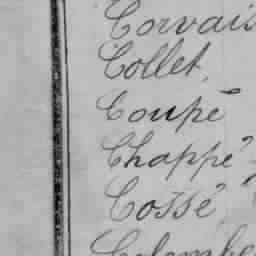 Corvais
Collet
Coupé
Chappé
Cossé